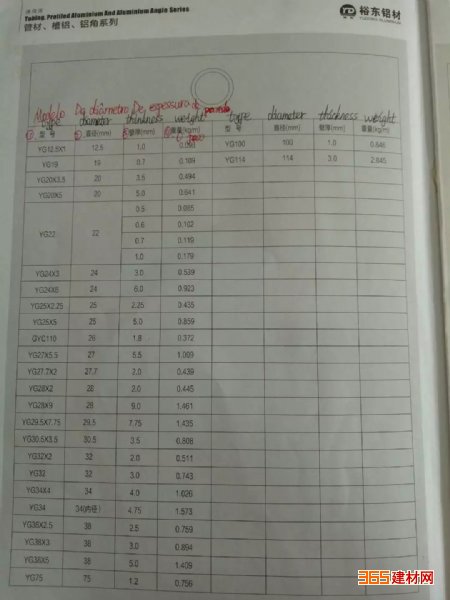 Tubing, Profiled Aluminium And Aluminium Angle Series
管材、槽铝、铝角系列
YD 裕东铝材
YUDONG ALUMINIUM
Modelo Da diâmetro De espessura de
diameter thickness weight type diameter thickness weight
型号 直径(mm) 壁厚(mm) 重量(kg/m) 型号 直径(mm) 壁厚(mm) 重量(kg/m)
YG12.5X1 12.5 1.0 0.098 YG100 100 1.0 0.846
YG19 19 0.7 0.109 YG114 114 3.0 2.845
YG20X3.5 20 3.5 0.494
YG20X5 20 5.0 0.641
YG22 22 0.5 0.085
0.6 0.102
0.7 0.119
1.0 0.179
YG24X3 24 3.0 0.539
YG24X6 24 6.0 0.923
YG25X2.25 25 2.25 0.435
YG25X5 25 5.0 0.859
GYC110 26 1.8 0.372
YG27X5.5 27 5.5 1.009
YG27.7X2 27.7 2.0 0.439
YG28X2 28 2.0 0.445
YG28X9 28 9.0 1.461
YG29.5X7.75 29.5 7.75 1.435
YG30.5X3.5 30.5 3.5 0.808
YG32X2 32 2.0 0.511
YG32 32 3.0 0.743
YG34X4 34 4.0 1.026
YG34 34(内径) 4.75 1.573
YG38X2.5 38 2.5 0.759
YG38X3 38 3.0 0.894
YG38X5 38 5.0 1.409
YG75 75 1.2 0.756
365建材网